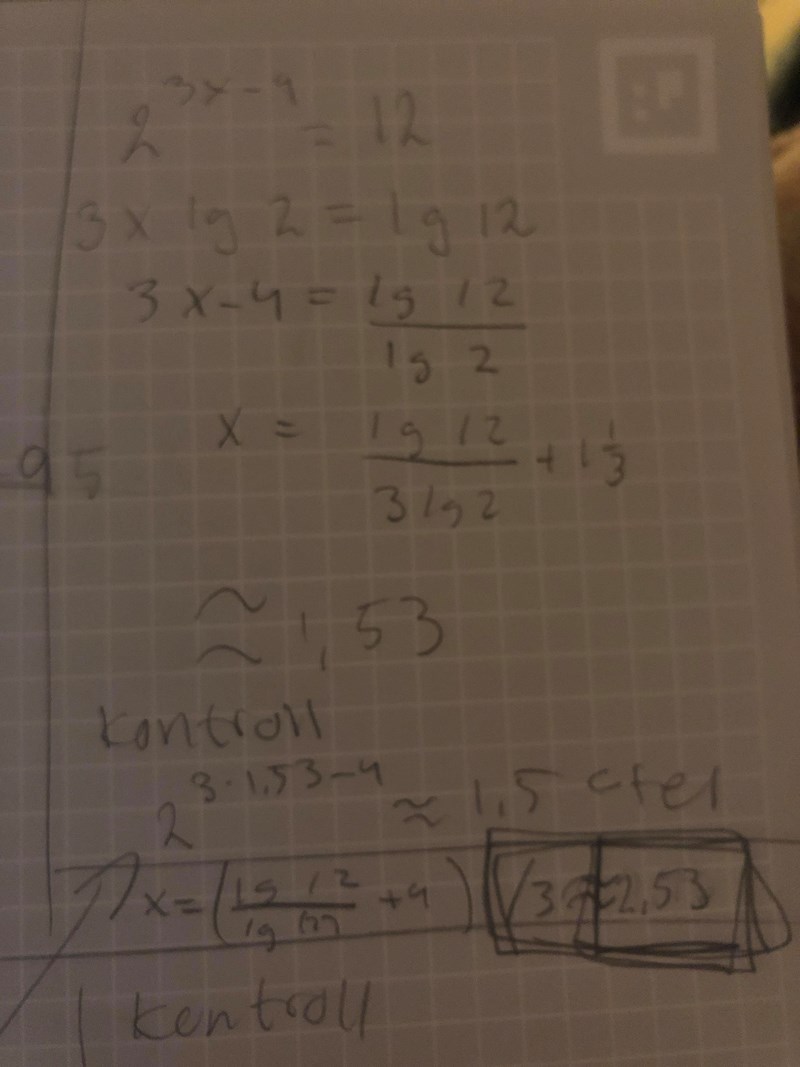 2^{3x-4} = 12
3x lg 2 = lg 12
3x-4 = \frac{lg 12}{lg 2}
x = \frac{lg 12}{3 lg 2} + 1\frac{1}{3}
95
≈ 1,53
kontroll
2^{3·1,53-4} ≈ 1,5 
x = (\frac{lg 12}{lg } +4) /3 ≈ 2,53
kontroll